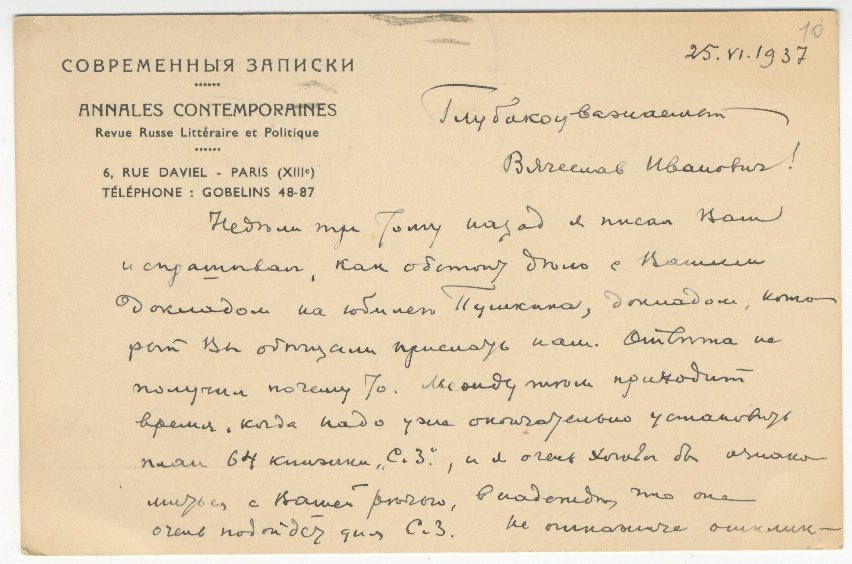 10
25.VI.1937
СОВРЕМЕННЫЯ ЗАПИСКИ
ANNALES CONTEMPORAINES
Revue Russe Littéraire et Politique
6, RUE DAVIEL - PARIS (XIIIe)
TÉLÉPHONE : GOBELINS 48-87
Глубокоуважаемый
Вячеслав Иванович!
Недѣли три тому назад я писал Вам
и спрашивал, как обстоит дѣло с Вашим
докладом на юбилею Пушкина, докладом, кото-
рый Вы обѣщали прислать нам. Отвѣта не
получил почему то. Между тѣм приходит
время, когда надо уже окончательно установить
план 64 книжки „С.З.", и я очень хотѣл бы ознако-
миться с Вашей рѣчью, в надеждѣ, что она
очень подойдет для С.З. Не откажите отклик-